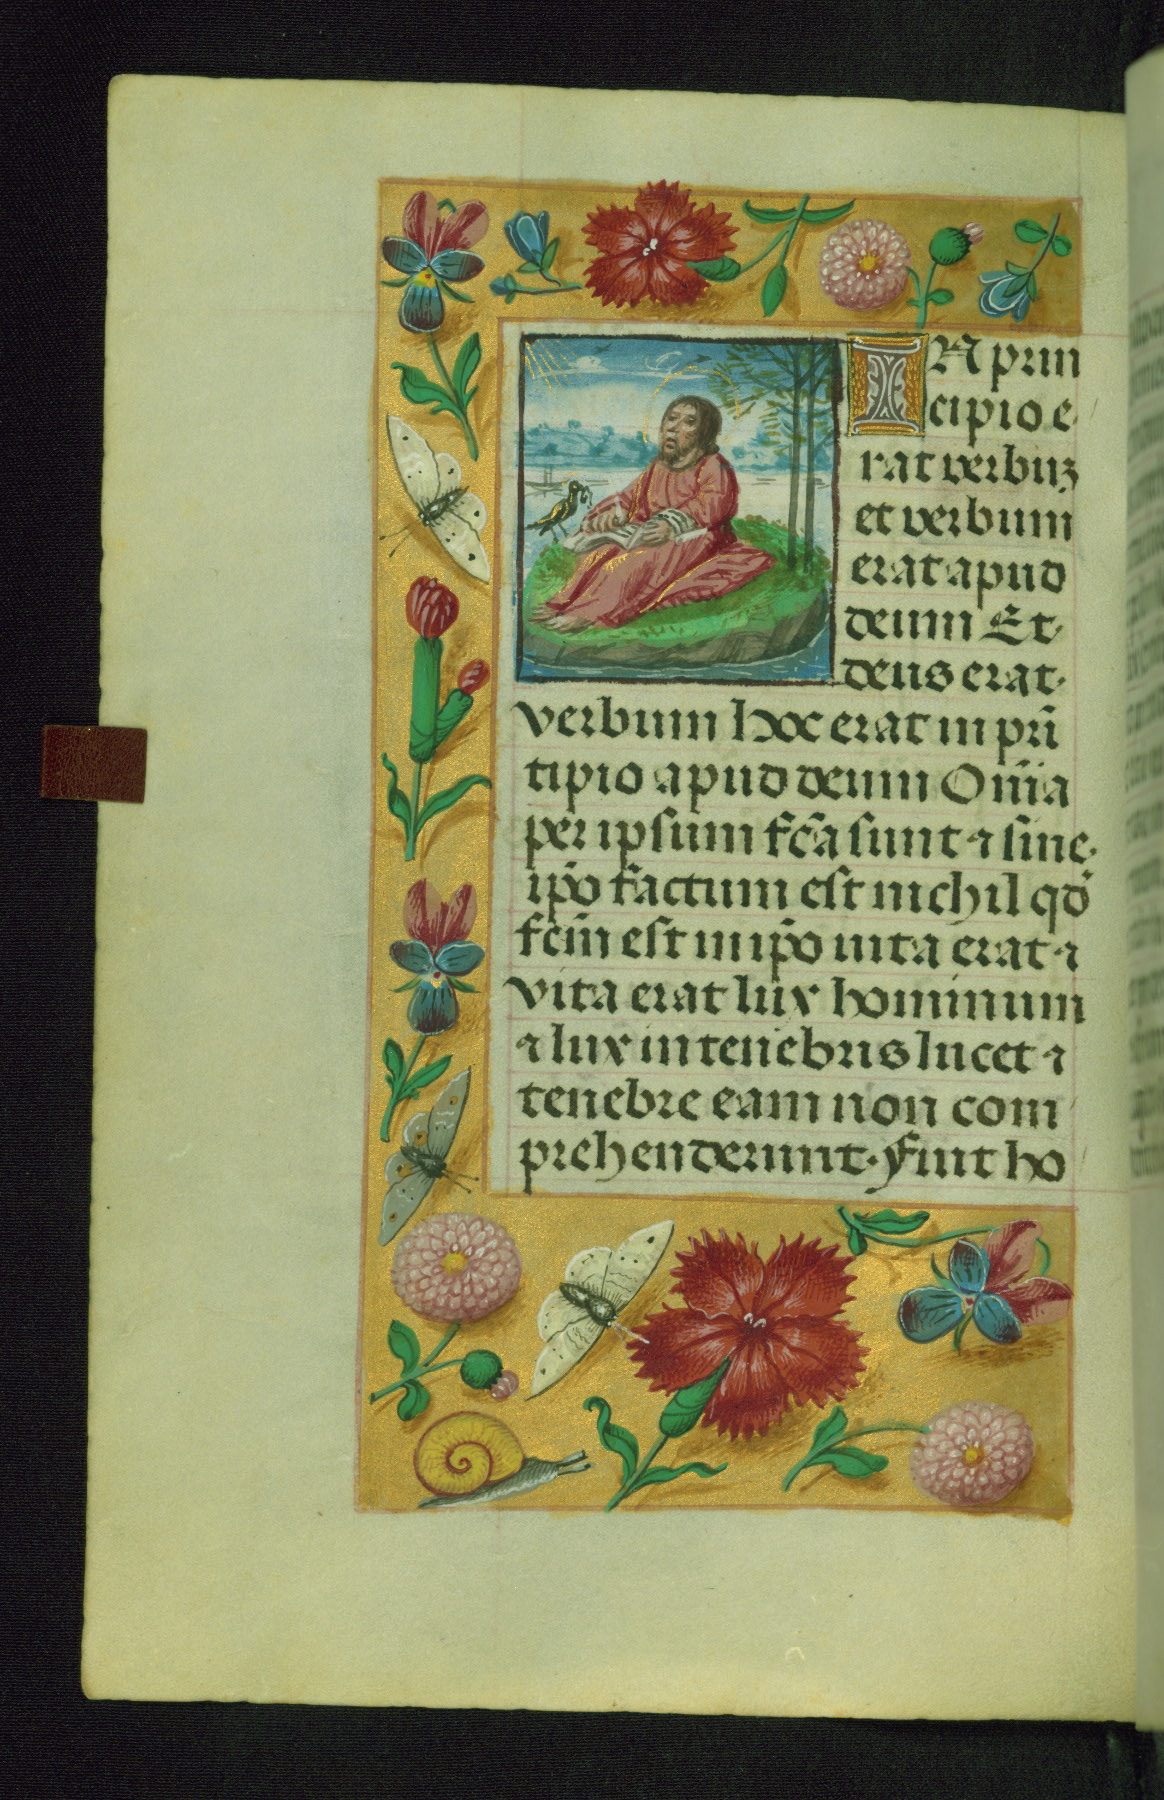 IN prin
cipio e
rat verbuʒ
et verbum
erat apud
deum Et
deus erat
verbum hoc erat in prī
tipio apud deum Om̄ia
per ipsum fc̄a sunt ⁊ sine
ip̄o factum est nichil qd̄
fcm̄ est in ip̄o uita erat ⁊
vita erat lux hominum
⁊ lux in tenebris lucet ⁊
tenebre eam non com
prehenderunt. Fuit ho